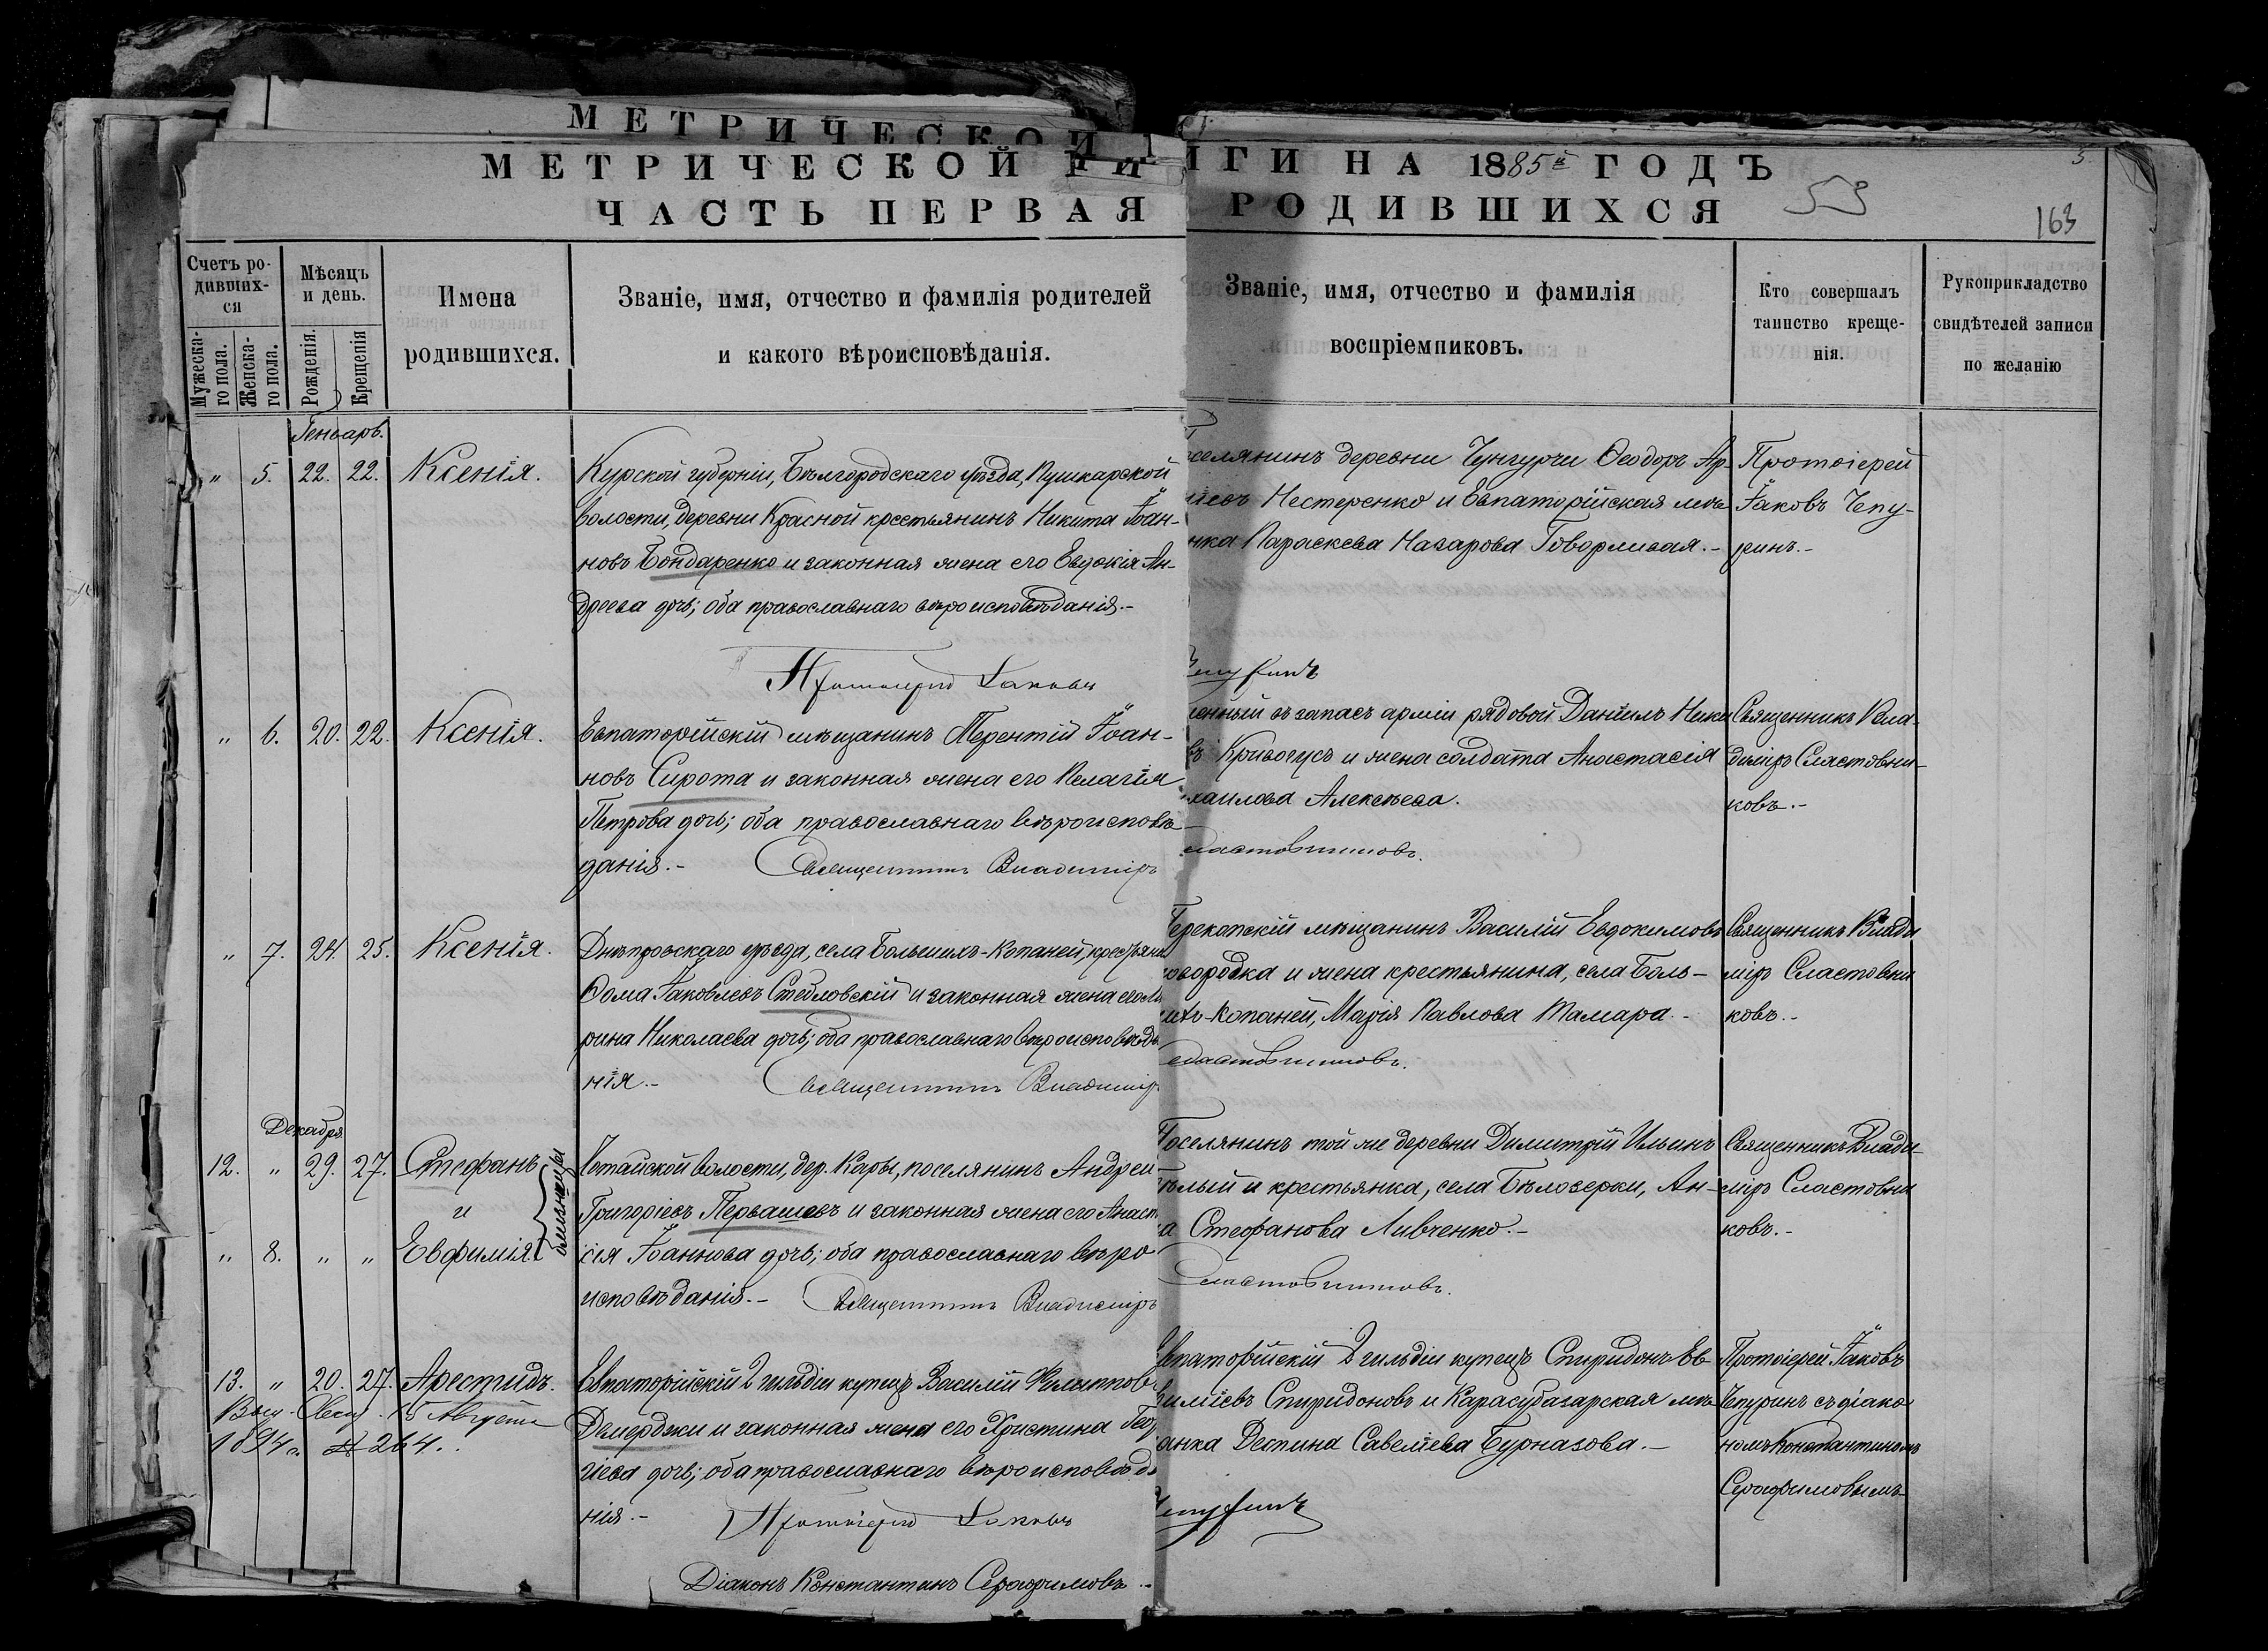 МЕТРИЧЕСКОЙ
МЕТРИЧЕСКОЙ КНИГИ НА 1885й ГОДЪ
ЧАСТЬ ПЕРВАЯ РОДИВШИХСЯ
5.
53
163
Счетъ родившихся
Мужеска-го пола.
Женска-го пола.
Мѣсяцъ и день.
Рожденія.
Крещенія
Имена родившихся.
Званіе, имя, отчество и фамилія родителей
и какого вѣроисповѣданія.
Званіе, имя, отчество и фамилія
воспріемниковъ.
Кто совершалъ
таинство креще-
нія.
Рукоприкладство
свидѣтелей записи
по желанію
Геньварь.
" 5. 22. 22. Ксенія.
Курской губерніи, Бѣлгородскаго уѣзда, Пушкарской
волости, деревни Красной крестьянинъ Никита Іоан-
новъ Бондаренко и законная жена его Евдокія Ан-
дреева дочь; оба православнаго вѣроисповѣданія.-
Протоіерей Іаковъ
селянинъ деревни Чунгурчи Ѳеодоръ Ар-
Нестеренко и Евпаторійская мѣ
нка Параскева Назарова Говорливая.-
Чепуринъ
Протоіерей
Іаковъ Чепу-
ринъ.-
" 6. 20. 22. Ксенія.
Евпаторійскій мѣщанинъ Терентій Іоан-
новъ Сирота и законная жена его Пелагія
Петрова дочь; оба православнаго вѣроисповѣ-
данія.- Священникъ Владиміръ
енный въ запасъ арміи рядовой Даніилъ Ники
въ Кривогусъ и жена солдата Анастасія
хаилова Алексѣева.
Сластовниковъ.
Священникъ Вла-
диміръ Сластовни-
ковъ.-
" 7. 24. 25. Ксенія.
Днѣпровскаго уѣзда, села Большихъ-Копаней, крестьяни
Ѳома Іаковлевъ Стебловскій и законная жена его Ма
рина Николаева дочь; оба православнаго вѣроисповѣда
нія.- Священникъ Владиміръ
Перекопскій мѣщанинъ Василій Евдокимовъ
бородка и жена крестьянина, села Боль-
ихъ-Копаней, Марія Павлова Тамара.-
Сластовниковъ.
Священникъ Влади
міръ Сластовни
ковъ.-
Декабря
12. " 29. 27. Стефанъ
и
" 8. " " Евфимія.
близнецы
волости, дер. Кары, поселянинъ Андрей
Григоріевъ Первашевъ и законная жена его Анаста
сія Іоаннова дочь; оба православнаго вѣро
исповѣданія.- Священникъ Владиміръ
Поселянинъ той же деревни Димитрій Ильинъ
ѣлый и крестьянка, села Бѣлозерки, Ан-
а Стефанова Ливченко.-
Сластовниковъ.
Священникъ Влади-
міръ Сластовни
ковъ.-
13. " 20. 27. Арестидъ.
15 Августа
1894 г. № 264.
Евпаторійскій 2 гильдіи купецъ Василій Филиппов
Демерджи и законная жена его Христина Геор
гіева дочь; оба православнаго вѣроисповѣда
нія.- Протоіерей Іаковъ
Діаконъ Константинъ Серафимовъ.-
Евпаторійскій 2 гильдіи купецъ Спиридонъ Ев
иміевъ Спиридоновъ и Карасубазарская мѣ
анка Деспина Савеліева Бурназова.-
Чепуринъ
Протоіерей Іаковъ
Чепуринъ съ діако
номъ Константиномъ
Серафимовымъ